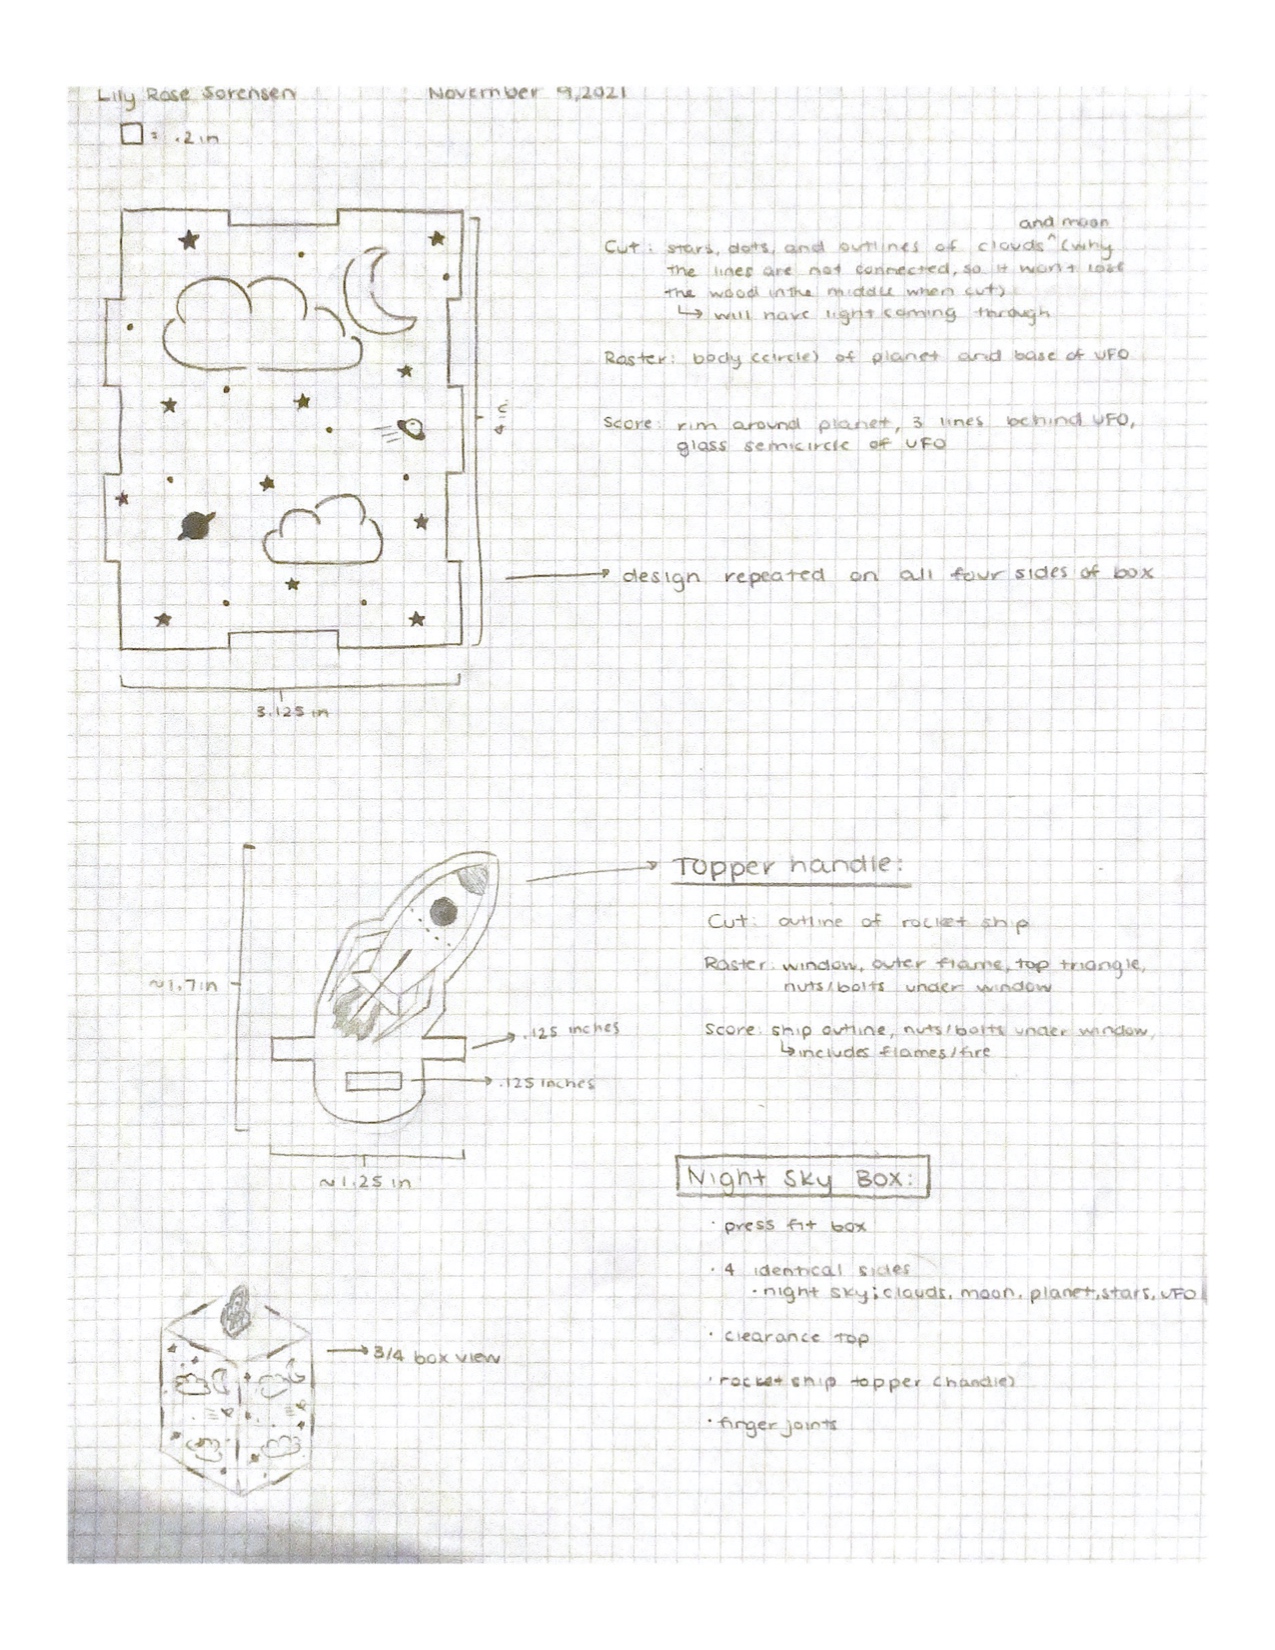 Lily Rose Sorensen November 9, 2021
= .2 in
and moon
Cut: stars, dots, and outlines of clouds ^ (why
the lines are not connected, so it won't lose
the wood in the middle when cut)
↳ will have light coming through
Raster: body (circle) of planet and base of UFO
Score: rim around planet, 3 lines behind UFO,
glass semicircle of UFO
4 in
design repeated on all four sides of box
3.125 in
Topper handle:
Cut: outline of rocket ship
Raster: window, outer flame, top triangle,
nuts/bolts under window
~1.7in
Score: ship outline, nuts/bolts under window,
↳includes flames/fire
.125 inches
.125 inches
~1.25 in
Night Sky Box:
· press fit box
· 4 identical sides
· night sky; clouds, moon, planet, stars, UFO
· clearance top
3/4 box view
· rocket ship topper (handle)
· finger joints